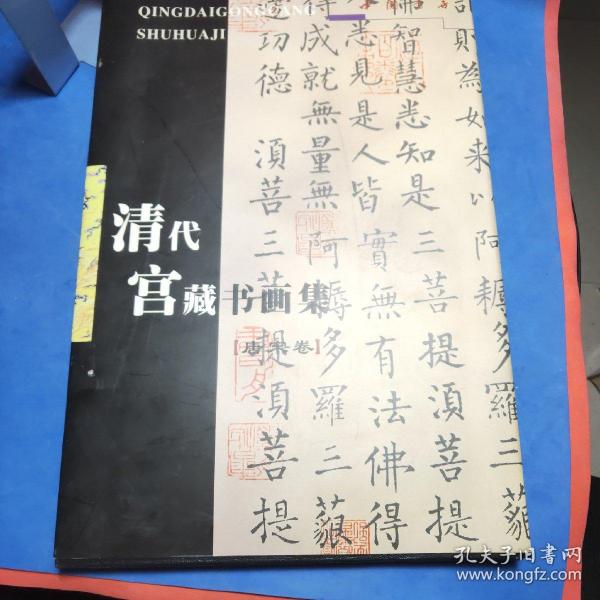 QINGDAIGONGCANG
SHUHUAJI
清代
宫藏书画集
[唐宋卷]
則為如来以阿耨多羅三藐
智慧悉知是三菩提湏菩提
悉見是人皆實無有法佛得
成就無量無阿耨多羅三藐
功德 湏菩三菩提湏菩提
孔夫子旧书网
www.kongfz.com